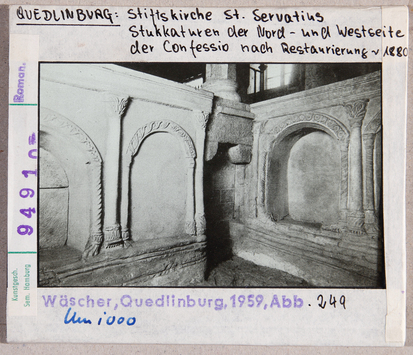 QUEDLINBURG: Stiftskirche St. Servatius
Stukkaturen der Nord- und Westseite
der Confessio nach Restaurierung v 1880
Roman.
94910
Kunstgesch.
Sem. Hamburg
Wäscher, Quedlinburg, 1959, Abb. 249
Um 1000